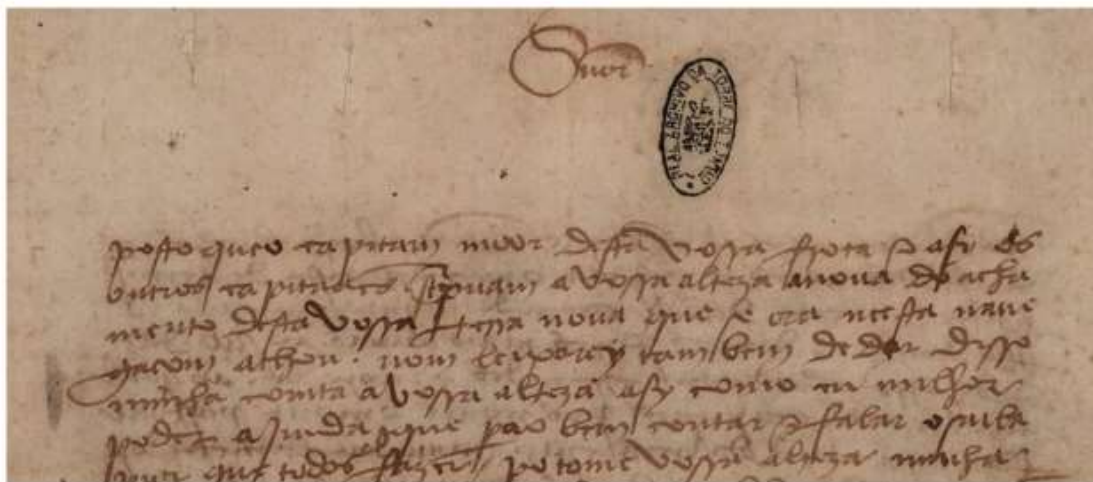 Snor
posto queo capitam moor desta vossa frota e asy os
outros capitaães screpuam a vossa alteza a noua do acha
mento desta vossa terra noua que se ora neesta naue
gaçom achou. nom leixarey tambem de dar disso
minha comta a vossa alteza asy como eu milhor
poder ajmda que pao bem contar e falar o saiba
pior que todos fazer. pero tome vossa alteza minha
REAL ARCHIVO DA TORRE DO TOMBO